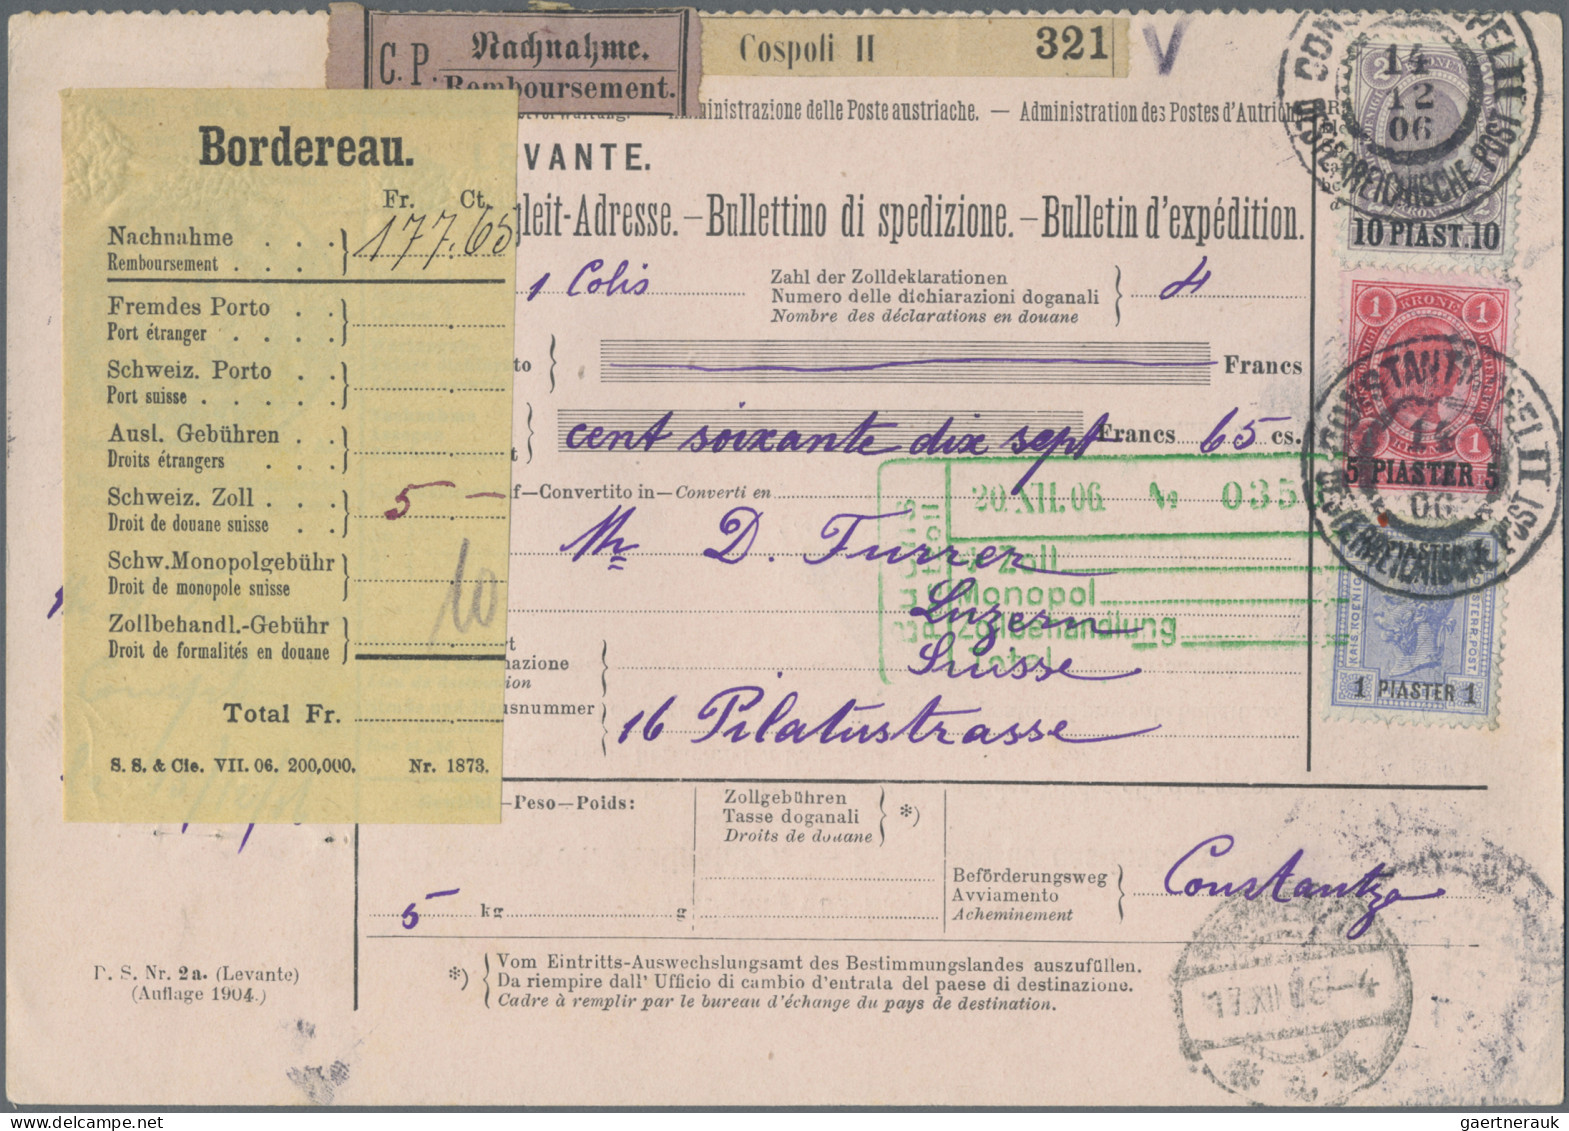 C. P. Nachnahme.
Remboursement.
Cospoli II 321
V
Administrazione delle Poste austriache. — Administration des Postes d'Autriche
VANTE.
gleit-Adresse. – Bullettino di spedizione. – Bulletin d'expédition.
Bordereau.
Fr. Ct.
Nachnahme . . .
Remboursement . . .
177.65
Fremdes Porto . .
Port étranger . . . .
Schweiz. Porto . .
Port suisse . . . . .
Ausl. Gebühren . .
Droits étrangers . . .
Schweiz. Zoll . . .
Droit de douane suisse . . .
5 –
Schw. Monopolgebühr
Droit de monopole suisse
10
Zollbehandl.-Gebühr
Droit de formalités en douane
Total Fr.
S. S. & Cie. VII. 06. 200,000. Nr. 1873.
1 Colis
Zahl der Zolldeklarationen
Numero delle dichiarazioni doganali
Nombre des déclarations en douane
4
Francs
cent soixante dix sept Francs 65 cs.
f—Convertito in—Converti en
20.XII.06. № 035
Zoll
Monopol
Zollbehandlung
Total
Mr D. Furrer
Luzern
Suisse
nazione
ion
snummer
16 Pilatusstrasse
–Peso–Poids:
5 kg g
Zollgebühren
Tasse doganali
Droits de douane
*)
Beförderungsweg
Avviamento
Acheminement
Constantza
*) Vom Eintritts-Auswechslungsamt des Bestimmungslandes auszufüllen.
Da riempire dall' Ufficio di cambio d'entrata del paese di destinazione.
Cadre à remplir par le bureau d'échange du pays de destination.
P. S. Nr. 2a. (Levante)
(Auflage 1904.)
2 KRONEN 2
14
12
06
OESTERREICHISCHE POST
10 PIAST. 10
1 KRONE 1
CONSTANTINOPEL II
14
06
OESTERREICHISCHE POST
5 PIASTER 5
KAIS. KOENIGL. OESTERR. POST
1 PIASTER 1
gaertnerauk